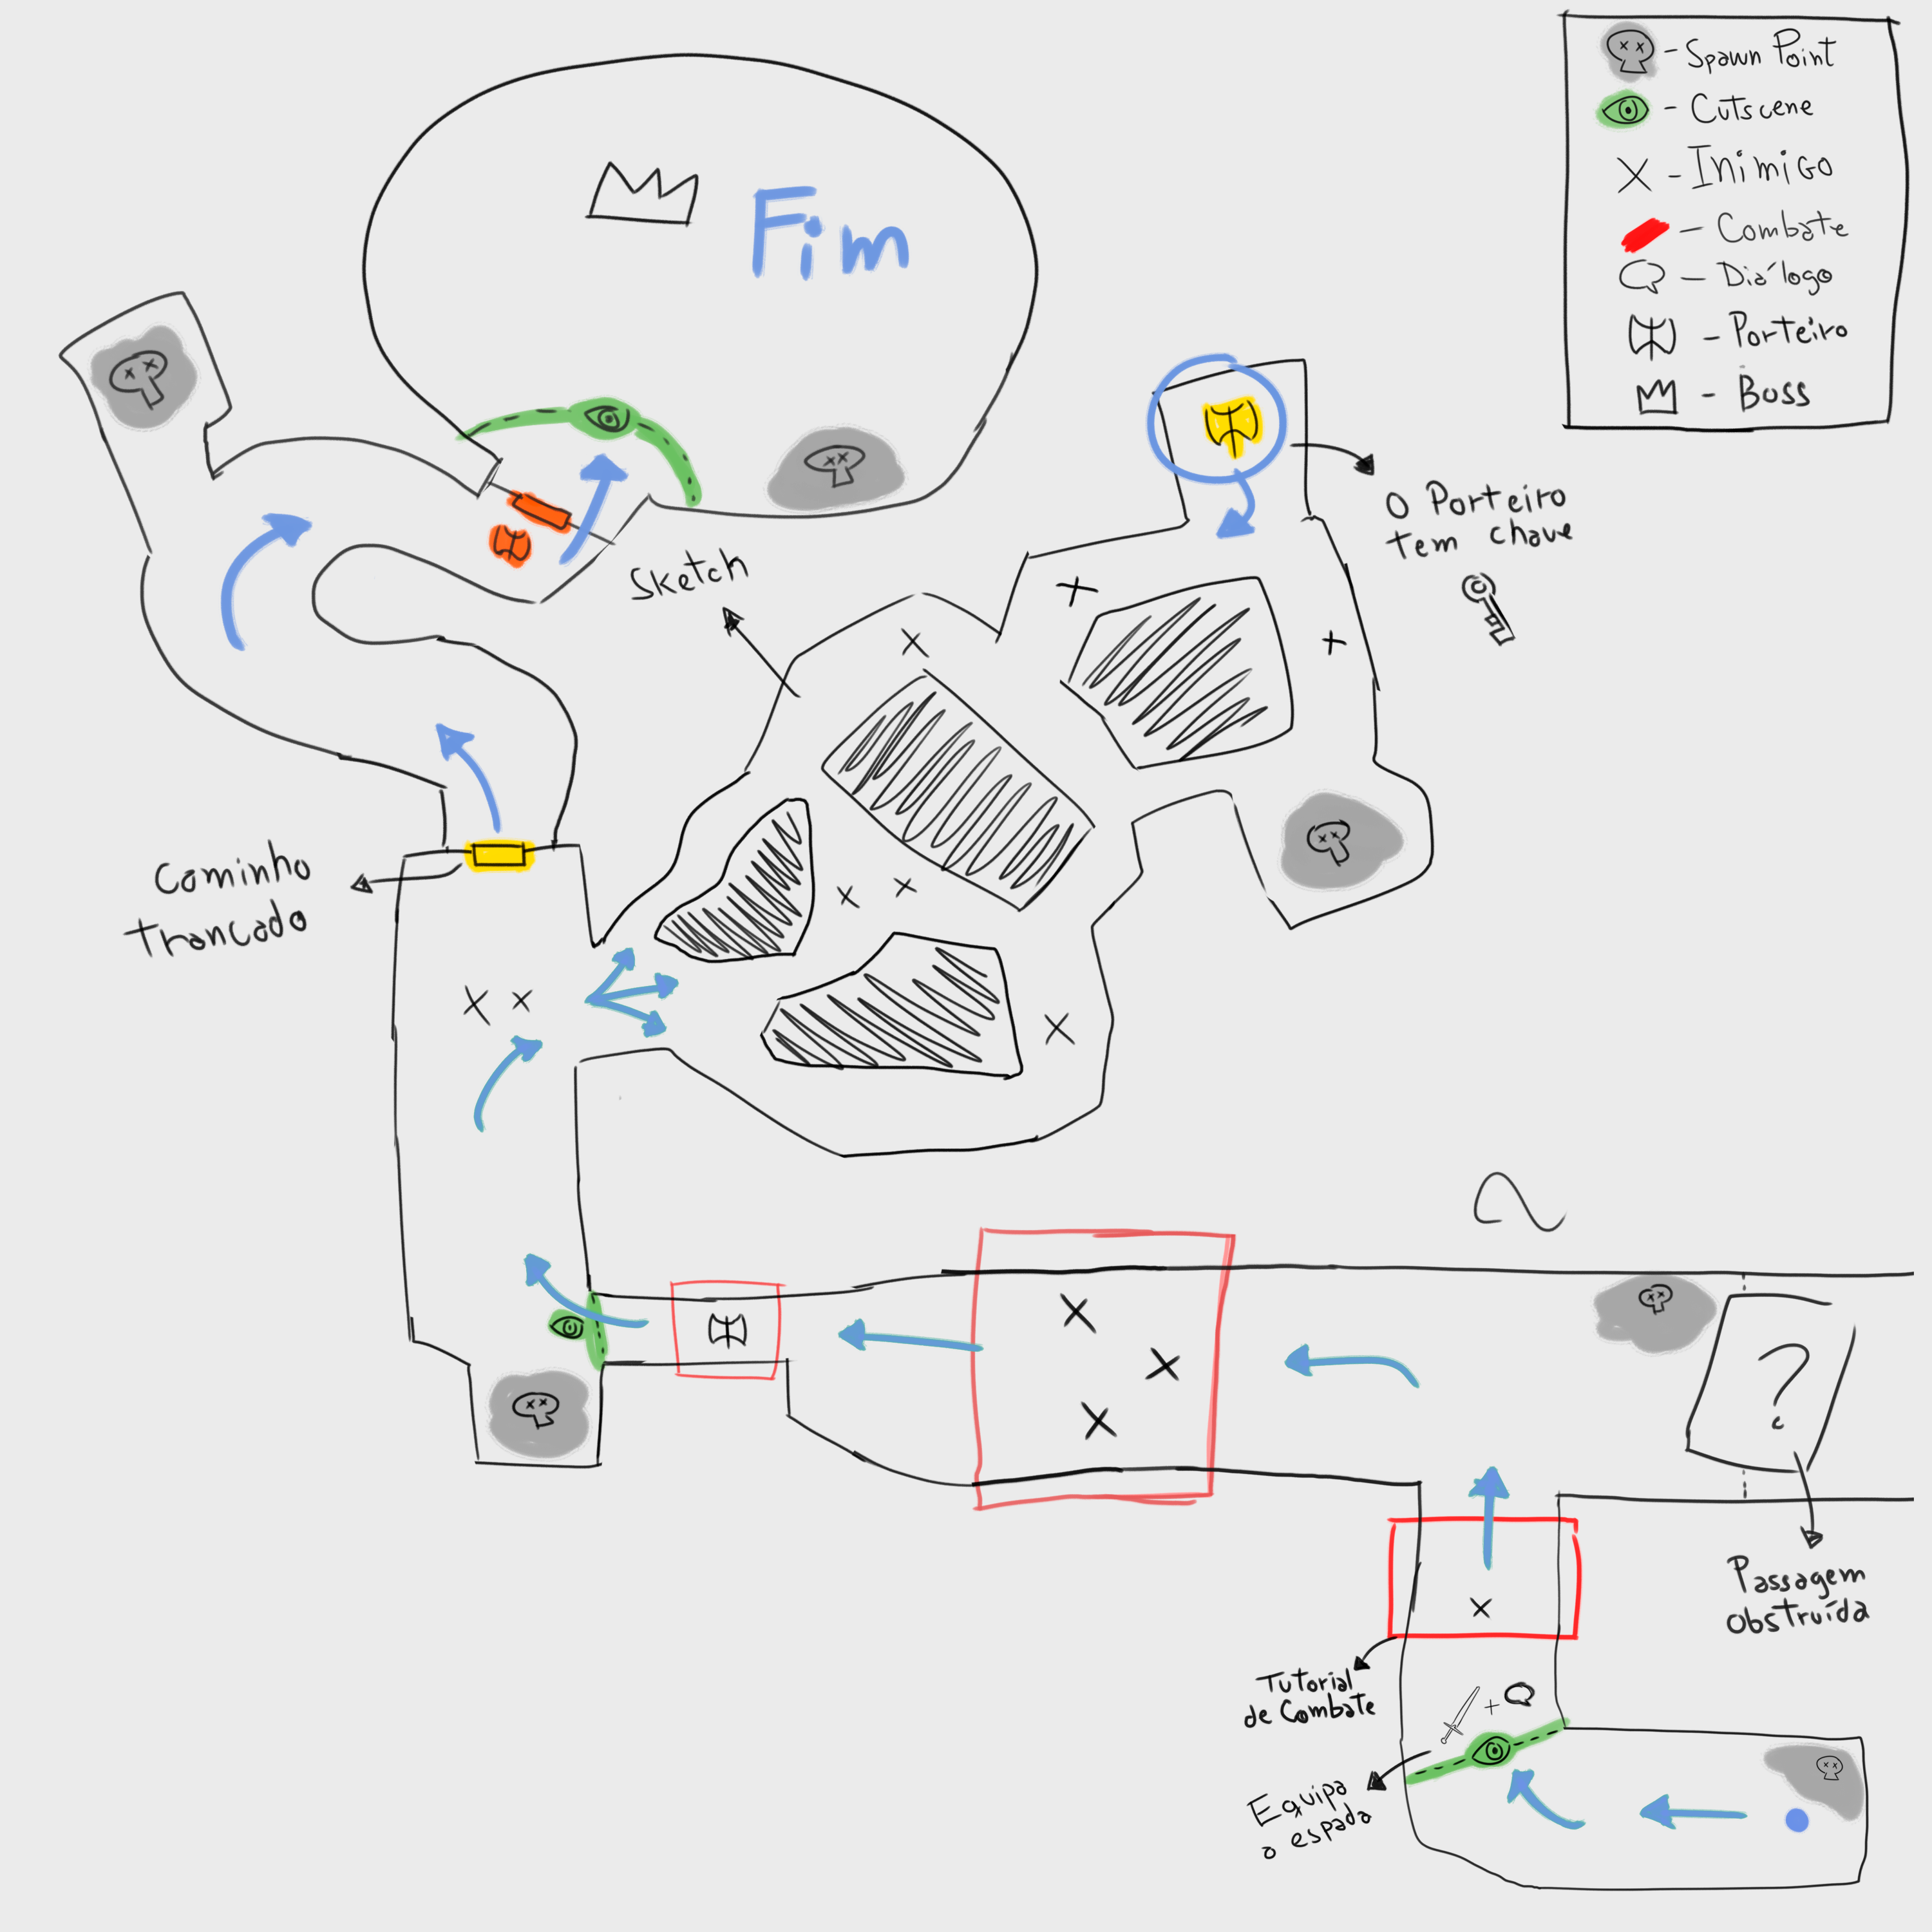 - Spawn Point
- Cutscene
X - Inimigo
- Combate
- Diálogo
- Porteiro
- Boss
Fim
O Porteiro
tem chave
Sketch
Caminho
trancado
?
Passagem
obstruída
Tutorial
de Combate
+
Equipa
a espada